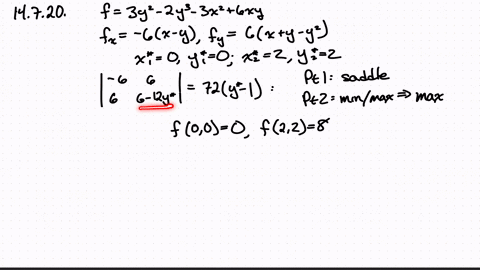 14.7.20. f = 3y² - 2y³ - 3x² + 6xy
fₓ = -6(x-y), f_y = 6(x+y-y²)
x₁* = 0, y₁* = 0; x₂* = 2, y₂* = 2
| -6 6 | = 72(y*-1) : Pt 1: saddle
| 6 6-12y* | Pt 2: min/max ⇒ max
f(0,0)=0, f(2,2)=8